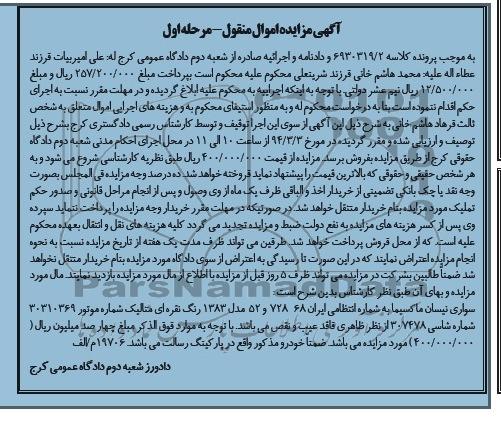 آگهی مزایده اموال منقول - مرحله اول
به موجب پرونده کلاسه ۶۹۳۰۳۱۹/۲ و دادنامه و اجرائیه صادره از شعبه دوم دادگاه عمومی کرج له: علی امیربیات فرزند
عطاء اله علیه: محمد هاشم خانی فرزند شریتعلی محکوم علیه محکوم است بپرداخت مبلغ ۲۵۷/۲۰۰/۰۰۰ ریال و مبلغ
۱۲/۵۰۰/۰۰۰ ریال نیم عشر دولتی با توجه به اینکه اجراییه به محکوم علیه ابلاغ گردیده و در مهلت مقرر نسبت به اجرای
حکم اقدام ننموده است بنا به درخواست محکوم له و به منظور استیفای محکوم به و هزینه های اجرایی اموال متعلق به شخص
ثالث فرهاد هاشم خانی به شرح ذیل این آگهی از سوی این اجرا توقیف و توسط کارشناس رسمی دادگستری کرج بشرح ذیل
توصیف و ارزیابی شده و مقرر گردیده در مورخ ۹۴/۳/۳ از ساعت ۱۰ الی ۱۱ در محل اجرای احکام مدنی شعبه دوم دادگاه
حقوقی کرج از طریق مزایده بفروش برسد مزایده از قیمت ۴۰۰/۰۰۰/۰۰۰ ریال طبق نظریه کارشناسی شروع می شود و به
هر شخص حقیقی و حقوقی که بالاترین قیمت را پیشنهاد نماید فروخته خواهد شد. ده درصد وجه مزایده فی المجلس بصورت
وجه نقد یا چک بانکی تضمینی از خریدار اخذ و الباقی ظرف یک ماه از وی وصول و پس از انجام مراحل قانونی و صدور حکم
تملیک مورد مزایده بنام خریدار منتقل خواهد شد. در صورتیکه در مهلت مقرر خریدار وجه مزایده را پرداخت ننماید سپرده
وی پس از کسر هزینه های مزایده به نفع دولت ضبط و مزایده تجدید می گردد کلیه هزینه های نقل و انتقال بعهده محکوم
علیه است. که از محل فروش پرداخت خواهد شد. طرفین می تواند ظرف مدت یک هفته از تاریخ مزایده نسبت به نحوه
انجام مزایده اعتراض نمایند که در این صورت تا رسیدگی به اعتراض از سوی دادگاه مورد مزایده بنام خریدار منتقل نخواهد
شد ضمناً طالبین بشرکت در مزایده می تواند ظرف ۵ روز قبل از مزایده با اطلاع از مال مورد مزایده بازدید نمایند. مال مورد
مزایده و بهای آن طبق نظر کارشناس بدین شرح است:
سواری نیسان ماکسیما به شماره انتظامی ایران ۶۸ ۷۲۸ و ۵۲ مدل ۱۳۸۳ رنگ نقره ای متالیک شماره موتور ۳۰۳۱۰۳۶۹
شماره شاسی ۳۰۷۴۷۸ از نظر ظاهری فاقد عیب و نقص می باشد. با توجه به موارد فوق الذکر مبلغ چهار صد میلیون ریال (
۴۰۰/۰۰۰/۰۰۰) مورد مزایده می باشد. ضمناً خودرو مذکور واقع در پارکینگ رسالت می باشد. ۱۹۷۰۶م/الف
دادورز شعبه دوم دادگاه عمومی کرج